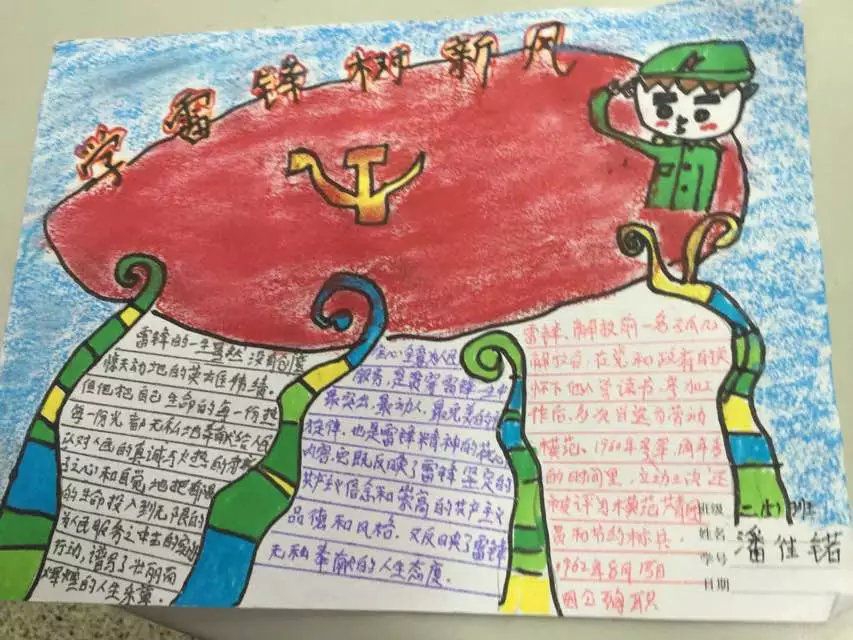 学雷锋树新风
雷锋的一生虽然没有创度
惊天动地的英雄伟绩
但他把自己生命的每一份热
每一份光都无私地奉献给人
以对人民的真诚与火热的
心和自觉地把有限
的生命投入到无限的
为民服务之中去的
行动，谱写了壮丽而
辉煌的人生乐章。
全心全意为人民
服务，是贯穿雷锋
最突出、最动人、最完美的
旋律，也是雷锋精神的核心
内容，它既反映了雷锋坚定的
共产主义信念和崇高的共产主义
品德和风格，又反映了雷锋
无私奉献的人生态度。
雷锋，解放前一名孤儿
解放后，在党和政府
怀下他入学读书，参加工
作后，多次当选为劳动
模范、1960年参军，两年多
的时间里，立功三次还
被评为模范共青团
员和节约标兵
1962年8月15日
因公殉职
班级 二(5)班
姓名 潘佳锘
学号
日期